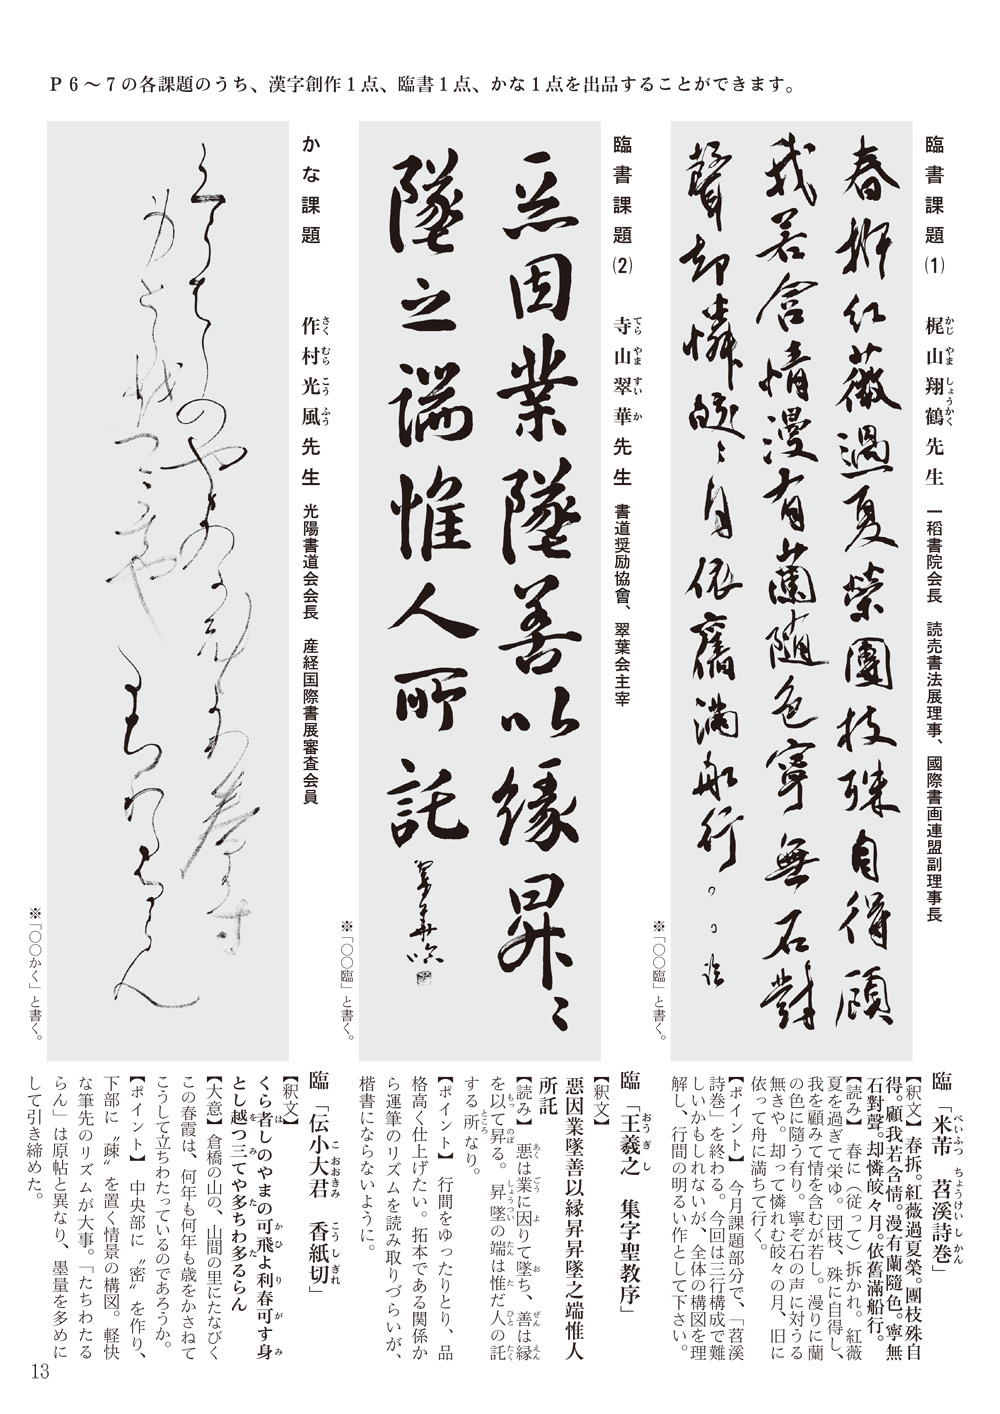 P6～7の各課題のうち、漢字創作1点、臨書1点、かな1点を出品することができます。
臨書課題(1)　梶山翔鶴先生　一稻書院会長　読売書法展理事、國際書画連盟副理事長
かじやましょうかく
春拆紅薇過夏榮團枝殊自得顧
我若含情漫有蘭随色寧無石對
聲却憐皎々月依舊滿船行
※「〇〇臨」と書く。
臨「米芾　苕溪詩巻」
べいふつ　ちょうけいしかん
【釈文】春拆。紅薇過夏榮。團枝殊自
得。顧我若含情。漫有蘭隨色。寧無
石對聲。却憐皎々月。依舊滿船行。
【読み】春に（従って）拆かれ。紅薇
夏を過ぎて栄ゆ。団枝、殊に自得し、
我を顧みて情を含むが若し。漫りに蘭
の色に隨う有り。寧ぞ石の声に対うる
無きや。却って憐れむ皎々の月、旧に
依って舟に満ちて行く。
【ポイント】　今月課題部分で、「苕溪
詩巻」を終わる。今回は三行構成で難
しいかもしれないが、全体の構図を理
解し、行間の明るい作として下さい。
臨書課題(2)　寺山翠華先生　書道奨励協會、翠葉会主宰
てらやますいか
悪因業墜善以縁昇々
墜之端惟人所託
翠華臨
※「〇〇臨」と書く。
臨「王羲之　集字聖教序」
おうぎし
【釈文】
悪因業墜善以縁昇昇墜之端惟人
所託
【読み】　悪は業に因りて墜ち、善は縁
あくごうよおぜんえん
を以て昇る。昇墜の端は惟だ人の託
もっのぼしょうついたんたひとたく
する所なり。
ところ
【ポイント】　行間をゆったりとり、品
格高く仕上げたい。拓本である関係か
ら運筆のリズムを読み取りづらいが、
楷書にならないように。
かな課題　作村光風先生　光陽書道会会長　産経国際書展審査会員
さくむらこうふう
くら者しのやまの可飛よ利春可す身
とし越つ三てや多ちわ多るらん
※「〇〇かく」と書く。
臨「伝小大君　香紙切」
こおおきみ　こうしぎれ
【釈文】
くら者しのやまの可飛よ利春可す身
はかひりがみ
とし越つ三てや多ちわ多るらん
をみたた
【大意】倉橋の山の、山間の里にたなびく
この春霞は、何年も何年も歳をかさねて
こうして立ちわたっているのであろうか。
【ポイント】　中央部に〝密〟を作り、
下部に〝疎〟を置く情景の構図。軽快
な筆先のリズムが大事。「たちわたる
らん」は原帖と異なり、墨量を多めに
して引き締めた。
13